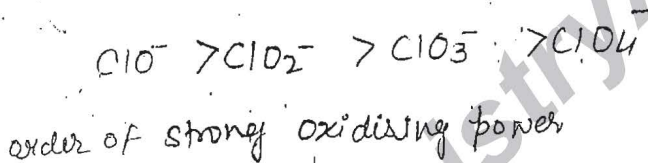 ClO⁻ > ClO₂⁻ > ClO₃⁻ > ClO₄⁻
order of strong oxidising power
istry.